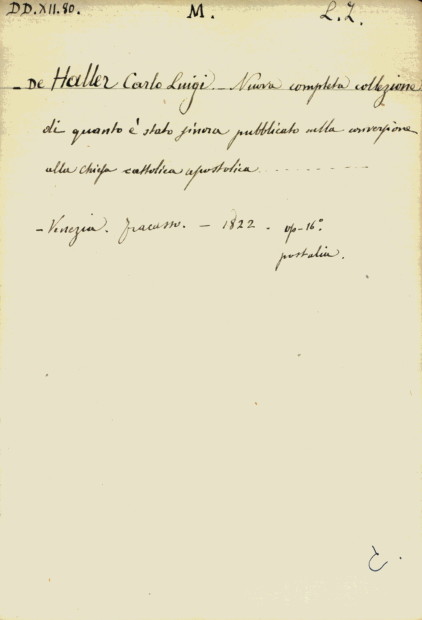 DD.XII.80. M. L.Z.
- De Haller Carlo Luigi Nuova completa collezione
di quanto è stato sinora pubblicato sulla conversione
alla chiesa cattolica apostolica
- Venezia. Fracasso. - 1822. op-16°.
postalin.